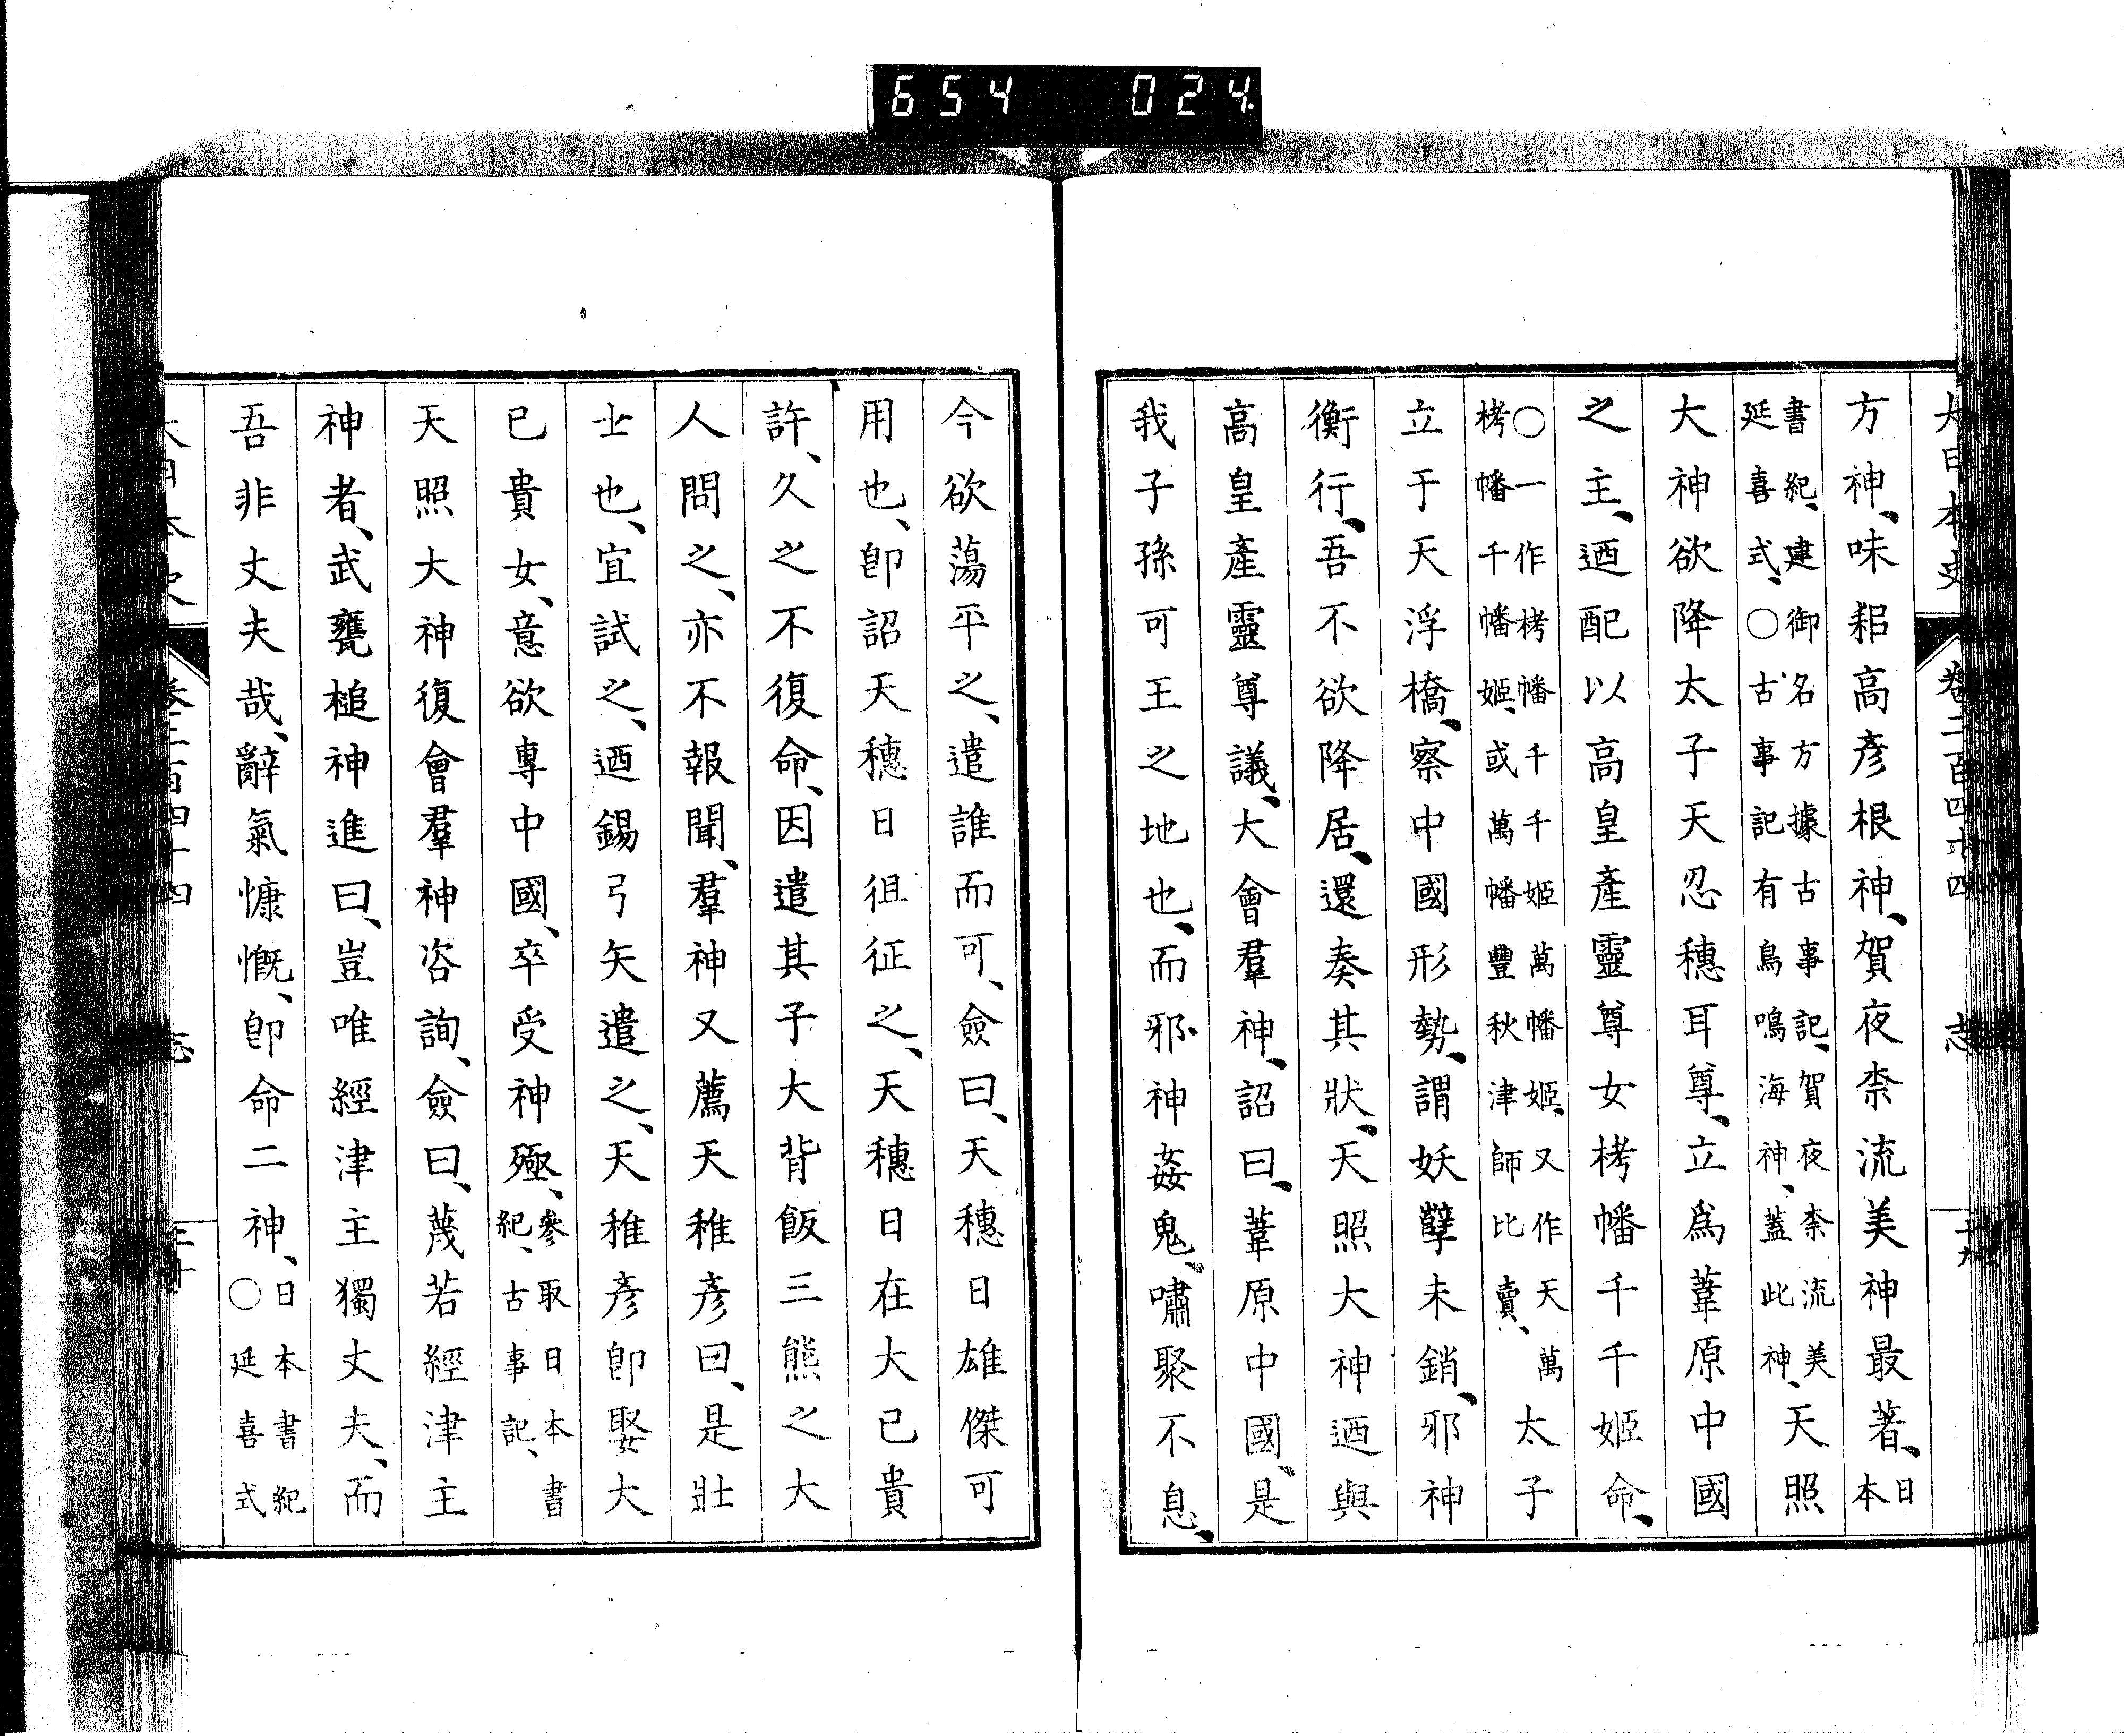 654 024
大日本史 卷二百四十四 志
方神、味耜高彦根神、賀夜柰流美神最著、日本
書紀、建御名方據古事記、賀夜柰流美
延喜式、○古事記有鳥鳴海神、蓋此神、天照
大神欲降太子天忍穗耳尊、立爲葦原中國
之主、迺配以高皇產靈尊女栲幡千千姬命、
○一作栲幡千千姬萬幡姬、又作天萬
栲幡千幡姬、或萬幡豐秋津師比賣、太子
立于天浮橋、察中國形勢、謂妖孽未銷、邪神
衡行、吾不欲降居、還奏其狀、天照大神迺與
高皇產靈尊議、大會羣神、詔曰、葦原中國、是
我子孫可王之地也、而邪神姦鬼、嘯聚不息、
今欲蕩平之、遣誰而可、僉曰、天穗日雄傑可
用也、卽詔天穗日徂征之、天穗日在大已貴
許、久之不復命、因遣其子大背飯三熊之大
人問之、亦不報聞、羣神又薦天稚彥曰、是壯
士也、宜試之、迺錫弓矢遣之、天稚彥卽娶大
已貴女、意欲專中國、卒受神殛、參取日本書
紀、古事記、
天照大神復會羣神咨詢、僉曰、蔑若經津主
神者、武甕槌神進曰、豈唯經津主獨丈夫、而
吾非丈夫哉、辭氣慷慨、卽命二神、日本書紀
○延喜式
大日本史 卷二百四十四 志